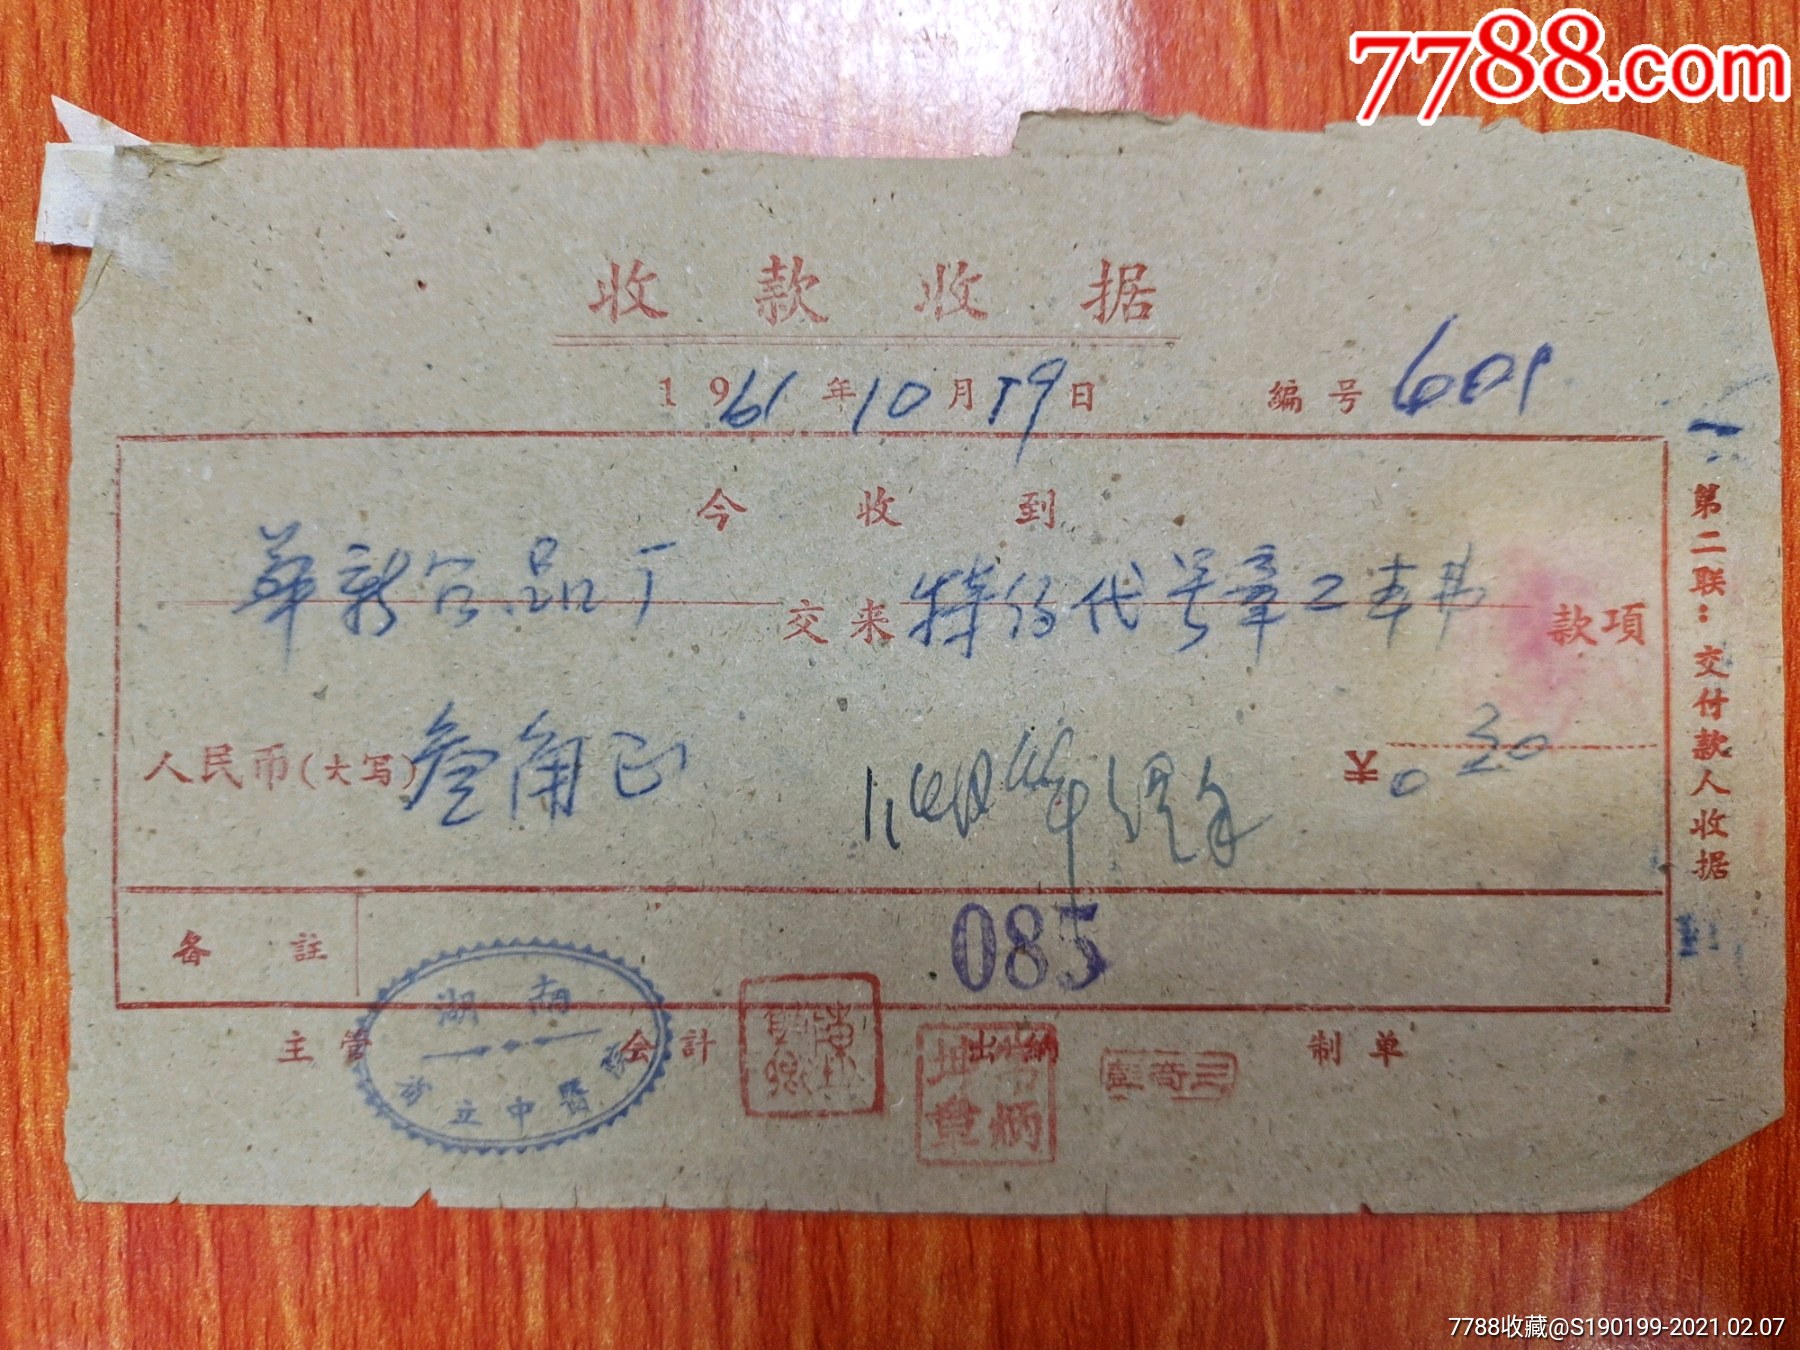 7788.com
收款收据
1961年10月19日 编号 601
今收到
華新食品厂 交来 特约代号章工本費 款項
人民币(大写) 叁角正 ¥ 0 30
备註 085
主管 会計 出納 制单
湖南
中醫院
第二联：交付款人收据
7788收藏@S190199-2021.02.07